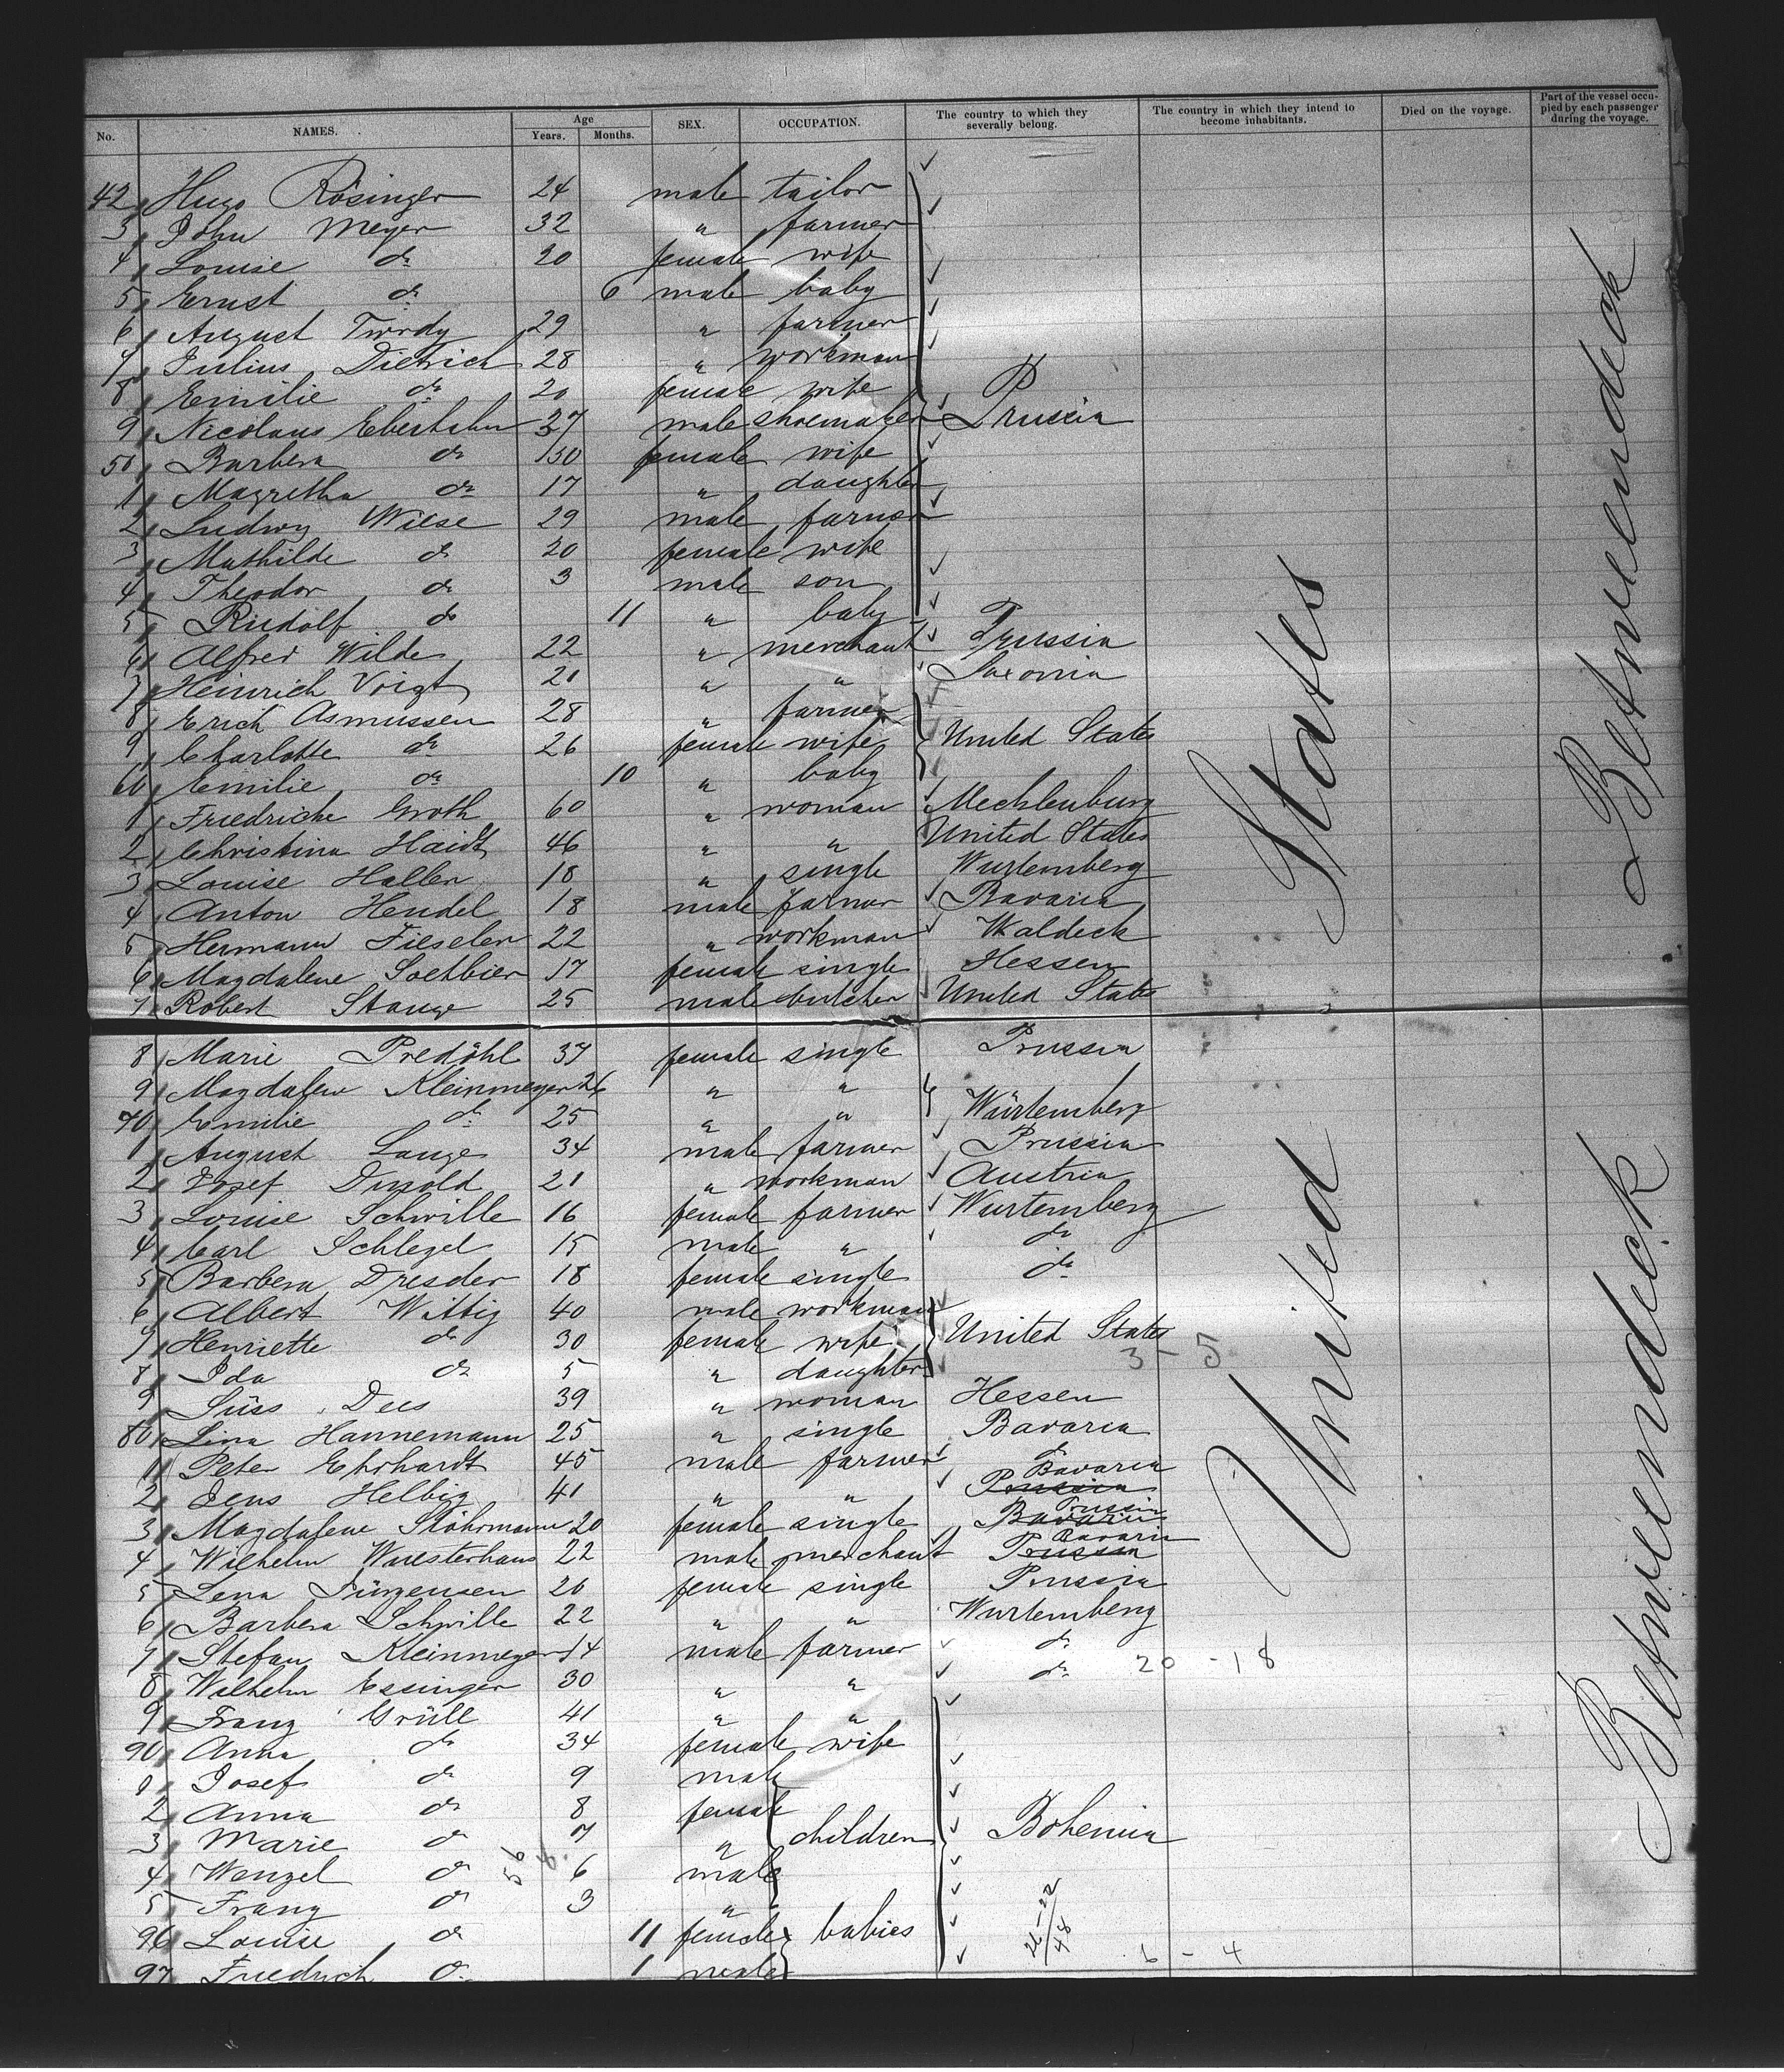 No. NAMES. Age Years. Months. SEX. OCCUPATION. The country to which they severally belong. The country in which they intend to become inhabitants. Died on the voyage. Part of the vessel occupied by each passenger during the voyage.
42 Hugo Rösinger 24 male tailor
3 John Meyer 32 " farmer
4 Louise do 20 female wife
5 Ernst do 6 male baby
6 August Twrdy 29 " farmer
7 Julius Dietrich 28 " workman
8 Emilie do 20 female wife
9 Nicolaus Eberhahn 37 male shoemaker Prussia
50 Barbera do 50 female wife
1 Magretha do 17 " daughter
2 Ludwig Wiese 29 male farmer
3 Mathilde do 20 female wife
4 Theodor do 3 male son
5 Rudolf do 11 " baby
6 Alfred Wilde 22 " merchant Prussia
7 Heinrich Voigt 21 " " Saxonia
8 Erich Asmussen 28 " farmer
9 Charlotte do 26 female wife United States
60 Emilie do 10 " baby
1 Friedriche Groth 60 " woman Mecklenburg
2 Christina Haidt 46 " " United States
3 Louise Haller 18 " single Wurtemberg
4 Anton Hendel 18 male farmer Bavaria
5 Hermann Fieseler 22 " workman Waldeck
6 Magdalene Soethbier 17 female single Hessen
7 Robert Stange 25 male butcher United States
8 Marie Predöhl 37 female single Prussia
9 Magdalene Kleinmeyer 26 " "
70 Emilie do 25 " " Würtemberg
1 August Lange 34 male farmer Prussia
2 Josef Dunold 21 " workman Austria
3 Louise Schwille 16 female farmer Wurtemberg
4 Carl Schlegel 15 male " do
5 Barbera Dresder 18 female single do
6 Albert Wittig 40 male workman
7 Henriette do 30 female wife United States
8 Ida do 5 " daughter 3 - 5
9 Süss Dees 39 " woman Hessen
80 Lina Hannemann 25 " single Bavaria
1 Peter Ehrhardt 45 male farmer do
2 Jens Helbig 41 " " Prussia Bavaria
3 Magdalene Stöhrmann 20 female single Bavaria Prussia
4 Wilhelm Wuesterhaus 22 male merchant Prussia Bavaria
5 Lena Jürgensen 20 female single Prussia
6 Barbera Schwille 22 " " Wurtemberg
7 Stefan Kleinmeyer 14 male farmer do
8 Wilhelm Essinger 30 " " do 20 - 18
9 Franz Grüll 41 " "
90 Anna do 34 female wife
1 Josef do 9 male
2 Anna do 8 female
3 Marie do 7 " children Bohemia
4 Wenzel do 6 male
5 Franz do 3 "
96 Louise do 11 female babies
97 Friedrich do 1 male 6 - 4
United States
Betweendeck
Betweendeck